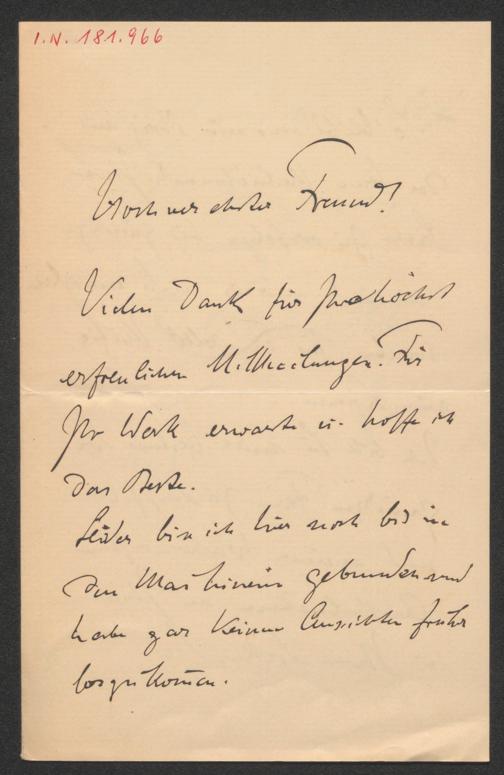 I.N. 181.966
Hochverehrter Freund!
Vielen Dank für Ihre höchst
erfreulichen Mittheilungen. Für
Ihr Werk erwarte u. hoffe ich
das Beste.
Leider bin ich hier noch bis in
den Mai hinein gebunden und
habe gar keine Aussichten früher
loszukommen.